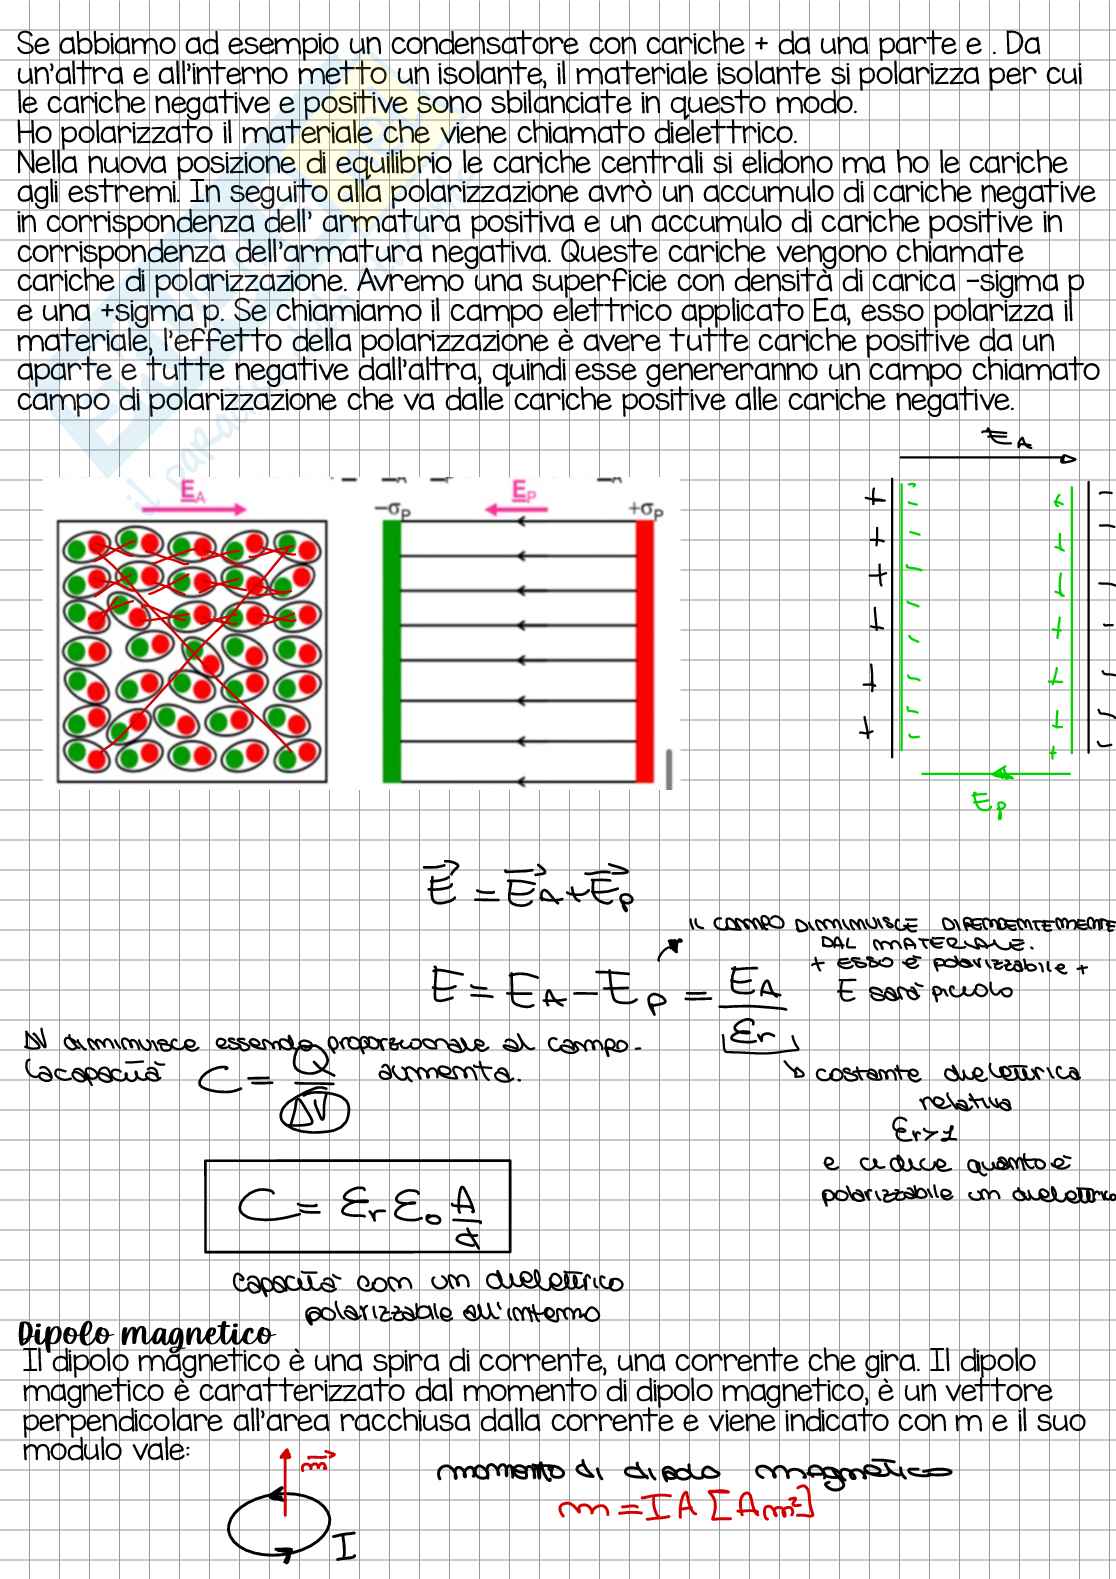 Se abbiamo ad esempio un condensatore con cariche + da una parte e . Da
un'altra e all'interno metto un isolante, il materiale isolante si polarizza per cui
le cariche negative e positive sono sbilanciate in questo modo.
Ho polarizzato il materiale che viene chiamato dielettrico.
Nella nuova posizione di equilibrio le cariche centrali si elidono ma ho le cariche
agli estremi. In seguito alla polarizzazione avrò un accumulo di cariche negative
in corrispondenza dell' armatura positiva e un accumulo di cariche positive in
corrispondenza dell'armatura negativa. Queste cariche vengono chiamate
cariche di polarizzazione. Avremo una superficie con densità di carica -sigma p
e una +sigma p. Se chiamiamo il campo elettrico applicato Ea, esso polarizza il
materiale, l'effetto della polarizzazione è avere tutte cariche positive da un
aparte e tutte negative dall'altra, quindi esse genereranno un campo chiamato
campo di polarizzazione che va dalle cariche positive alle cariche negative.
E_A
E_A
−σ_P E_P +σ_P
E_P
E⃗ = E⃗_A + E⃗_P
IL CAMPO DIMINUISCE DIPENDENTEMENTE
DAL MATERIALE.
+ ESSO È polarizzabile +
E sarà piccolo
E = E_A − E_P = E_A / εr
ΔV diminuisce essendo proporzionale al campo.
La capacità C = Q / ΔV aumenta.
costante dielettrica
relativa
εr > 1
e ci dice quanto è
polarizzabile un dielettrico
C = εr ε0 A / d
capacità con un dielettrico
polarizzabile all'interno
Dipolo magnetico
Il dipolo magnetico è una spira di corrente, una corrente che gira. Il dipolo
magnetico è caratterizzato dal momento di dipolo magnetico, è un vettore
perpendicolare all'area racchiusa dalla corrente e viene indicato con m e il suo
modulo vale:
m⃗
momento di dipolo magnetico
m = I A [Am²]
I